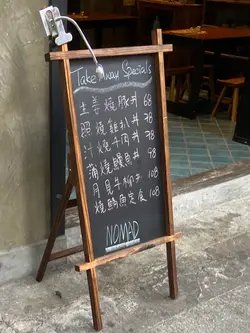 Take Away Specials
生姜燒豚丼 68
照燒雞扒丼 78
汁燒牛肉丼 78
蒲燒鰻魚丼 98
月見牛柳丼 108
燒鯖魚定食 108
NOMAD